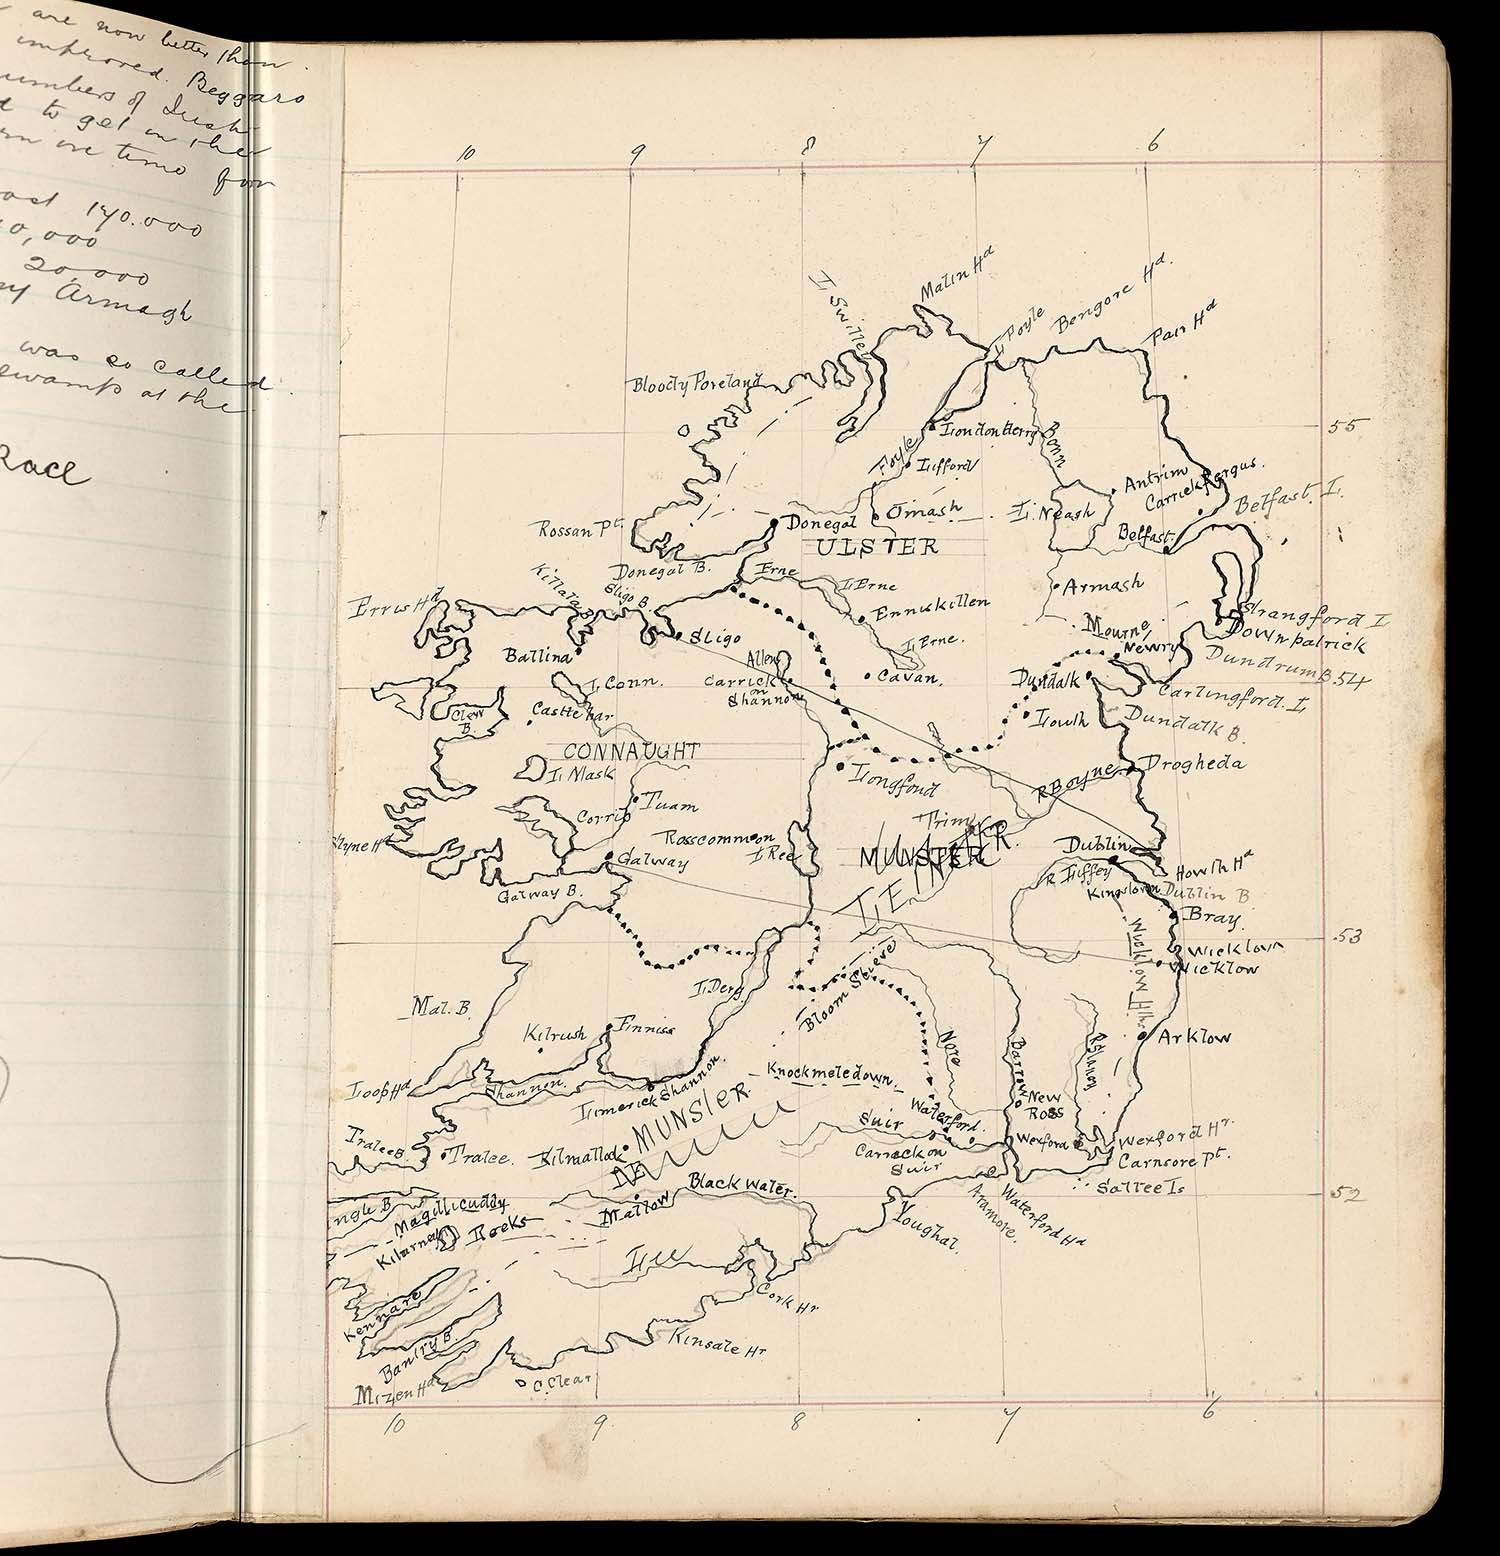 are now better than
improved. Beggars
numbers of Irish
to get in the
in time for
170.000
0,000
20,000
Armagh
was so called
swamp at the
Race
10 9 8 7 6
Malin Hd
L Swilley
L Foyle
Bengore Hd.
Fair Hd
Bloody Foreland
55
LondonDerry
Bann
Foyle
Lifford
Antrim
Carrickfergus.
Belfast. L.
Omash
L. Neagh
Rossan Pt.
Donegal
Belfast.
ULSTER
Donegal B.
Erne
L Erne
Killala B
Sligo B.
Armash
Erris Hd
Enniskillen
Strangford L
Mourne
Downpatrick
Sligo
L Erne.
Newry
Ballina
Allen
Dundrum B. 54
Cavan.
Dundalk
L. Conn.
Carrick
on
Shannon
Carlingford. L
Clew
B.
Castlebar
Louth
Dundalk B.
CONNAUGHT
L Mask
Longford
R Boyne
Drogheda
Tuam
Corrib
Trim
Rosscommon
L Ree
MUNSTER
LEINSTER.
Dublin
Slyne Hd
Galway
Howth Hd
R Liffey
Kingstown
Dublin B
Galway B.
Bray
Wicklow Hts.
53
Wicklow
Wicklow
L. Derg.
Bloom Slieve
Mal. B.
Kilrush
Enniss
Nore
Barrow
R Slaney
Arklow
Knockmeledown.
Loop Hd
Shannon.
Limerick
Shannon.
New
Ross
MUNSTER
Suir
Waterford.
Tralee B.
Tralee.
Kilmallock
Carrick on
Suir
Wexford
Wexford Hr.
Carnsore Pt.
LE
Black Water.
Saltee Is
52
ngle B
Magillicuddy
Reeks
Mallow
Killarney
Youghal.
Ardmore.
Waterford Hd
Lee
Kenmare
Cork Hr
Bantry B.
Kinsale Hr
Mizen Hd
C. Clear
10 9 8 7 6